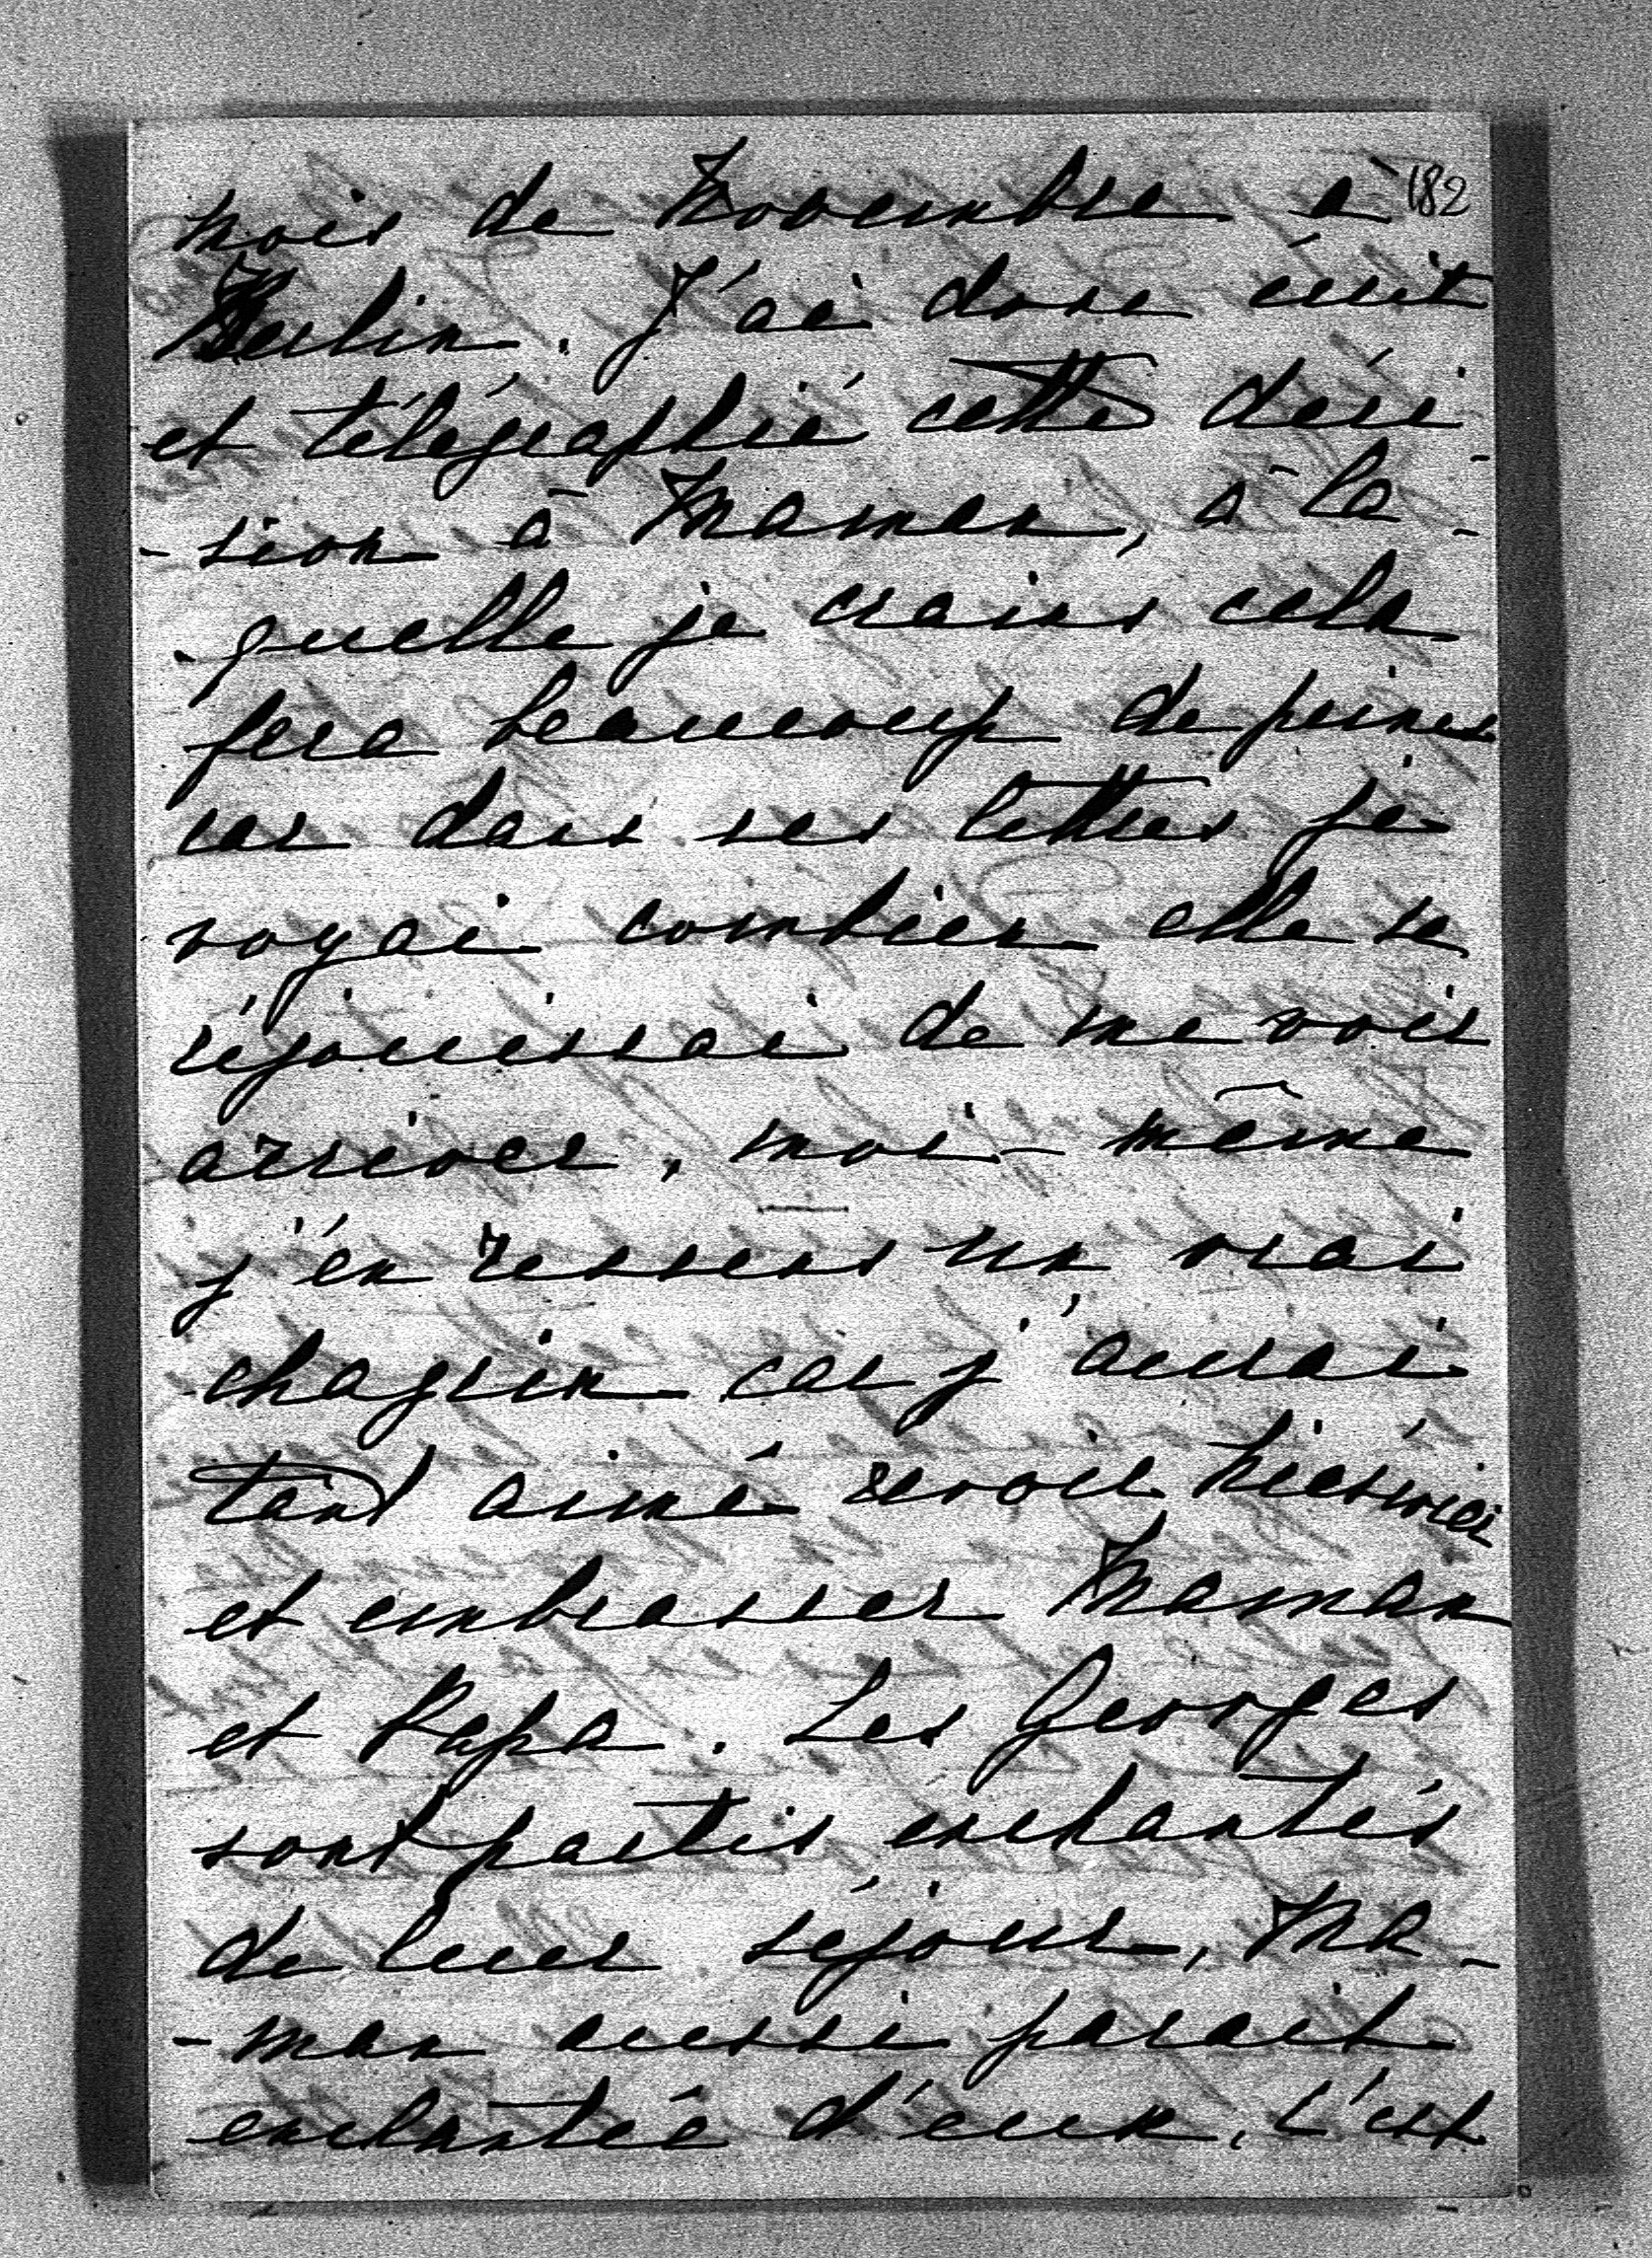 182
mois de Novembre à
Berlin. J'ai donc écrit
et télégraphié cette déci-
-sion à Maman, à la-
-quelle je crains cela
fera beaucoup de peine
car dans ses lettres je
voyai combien elle se
réjouissai de me voir
arriver, moi-même
j'en ressens un vrai
chagrin car j'aurai
tant aimé revoir Nieswiei
et embrasser Maman
et Papa. Les Georges
sont partis enchantés
de leur séjour, Ma-
-man aussi parait
enchantée d'eux, c'est